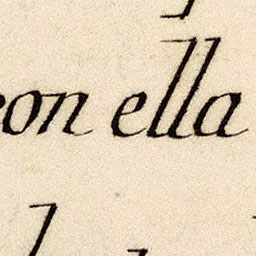 con ella